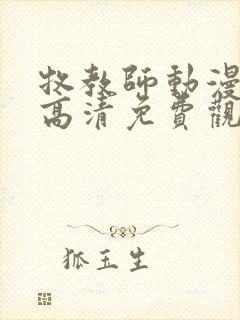 牧教師動漫
高清免費觀
狐玉生